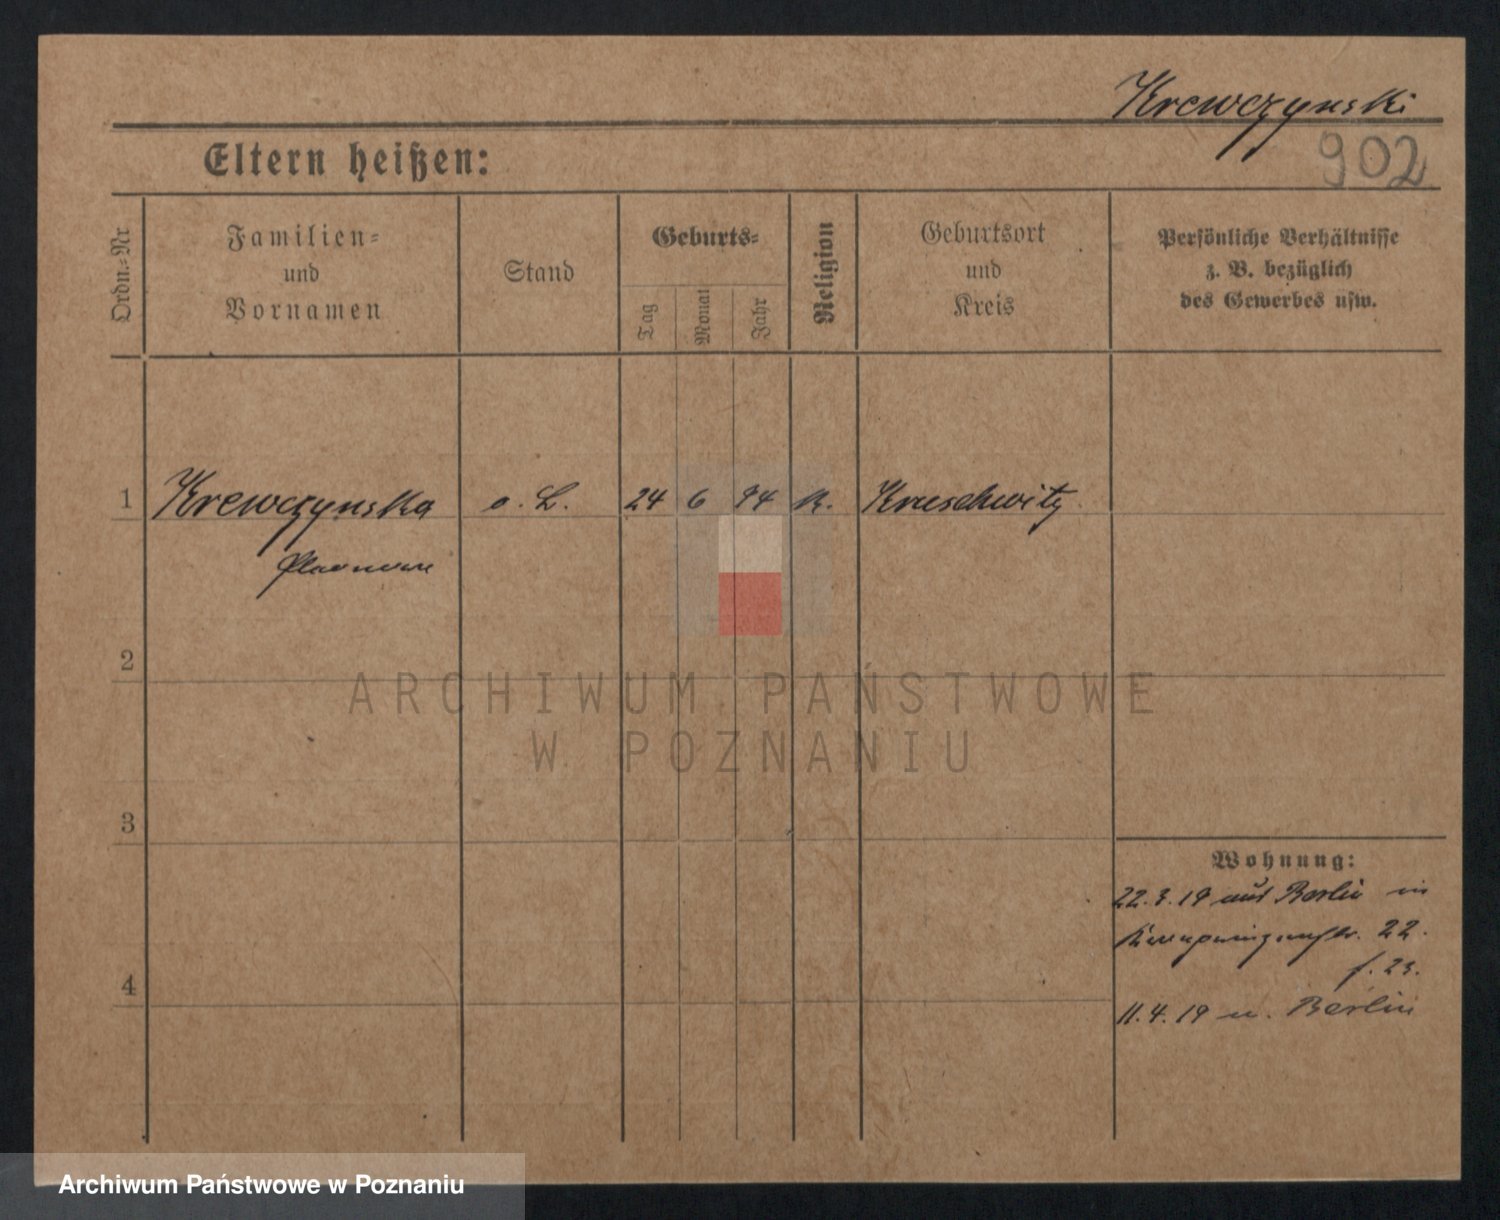 Krewczynski
902
Eltern heißen:
Ordn.-Nr
Familien-
und
Vornamen
Stand
Geburts-
Tag
Monat
Jahr
Religion
Geburtsort
und
Kreis
Persönliche Verhältnisse
z. B. bezüglich
des Gewerbes usw.
1 Krewczynska o. B. 24 6 94 K. Kruschwitz
2
ARCHIWUM PAŃSTWOWE
W POZNANIU
3
Wohnung:
22.3.19 aus Berlin in
22.
11.4.19 n. Berlin
4
Archiwum Państwowe w Poznaniu